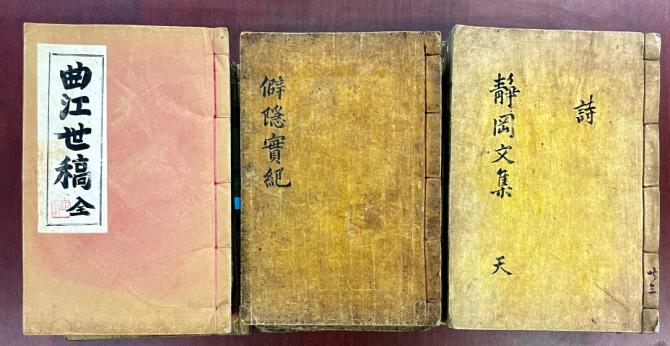 曲江世稿
全
僻隱實紀
靜岡文集
天
詩
共三